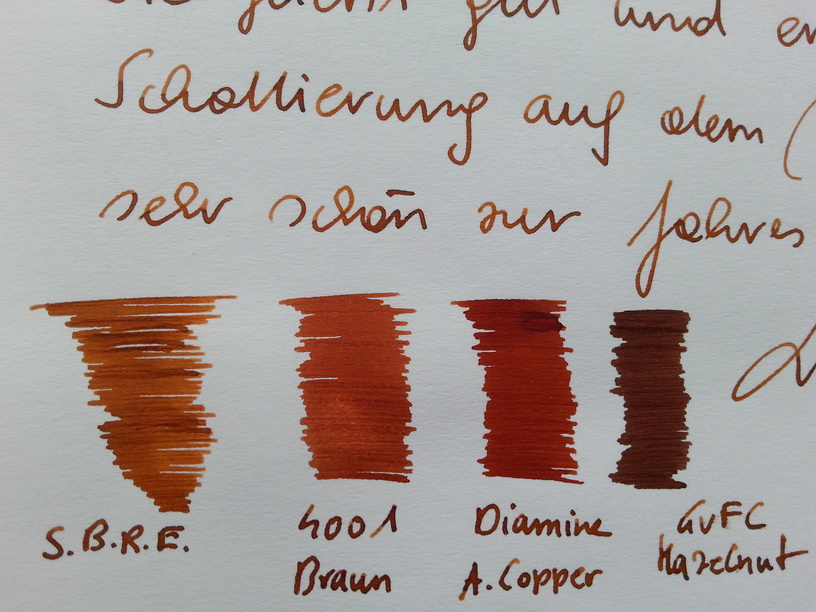 gut und
Schattierung auf dem (
sehr schön zur Jahres
S.B.R.E.
4001
Braun
Diamine
A. Copper
GvFC
Hazelnut